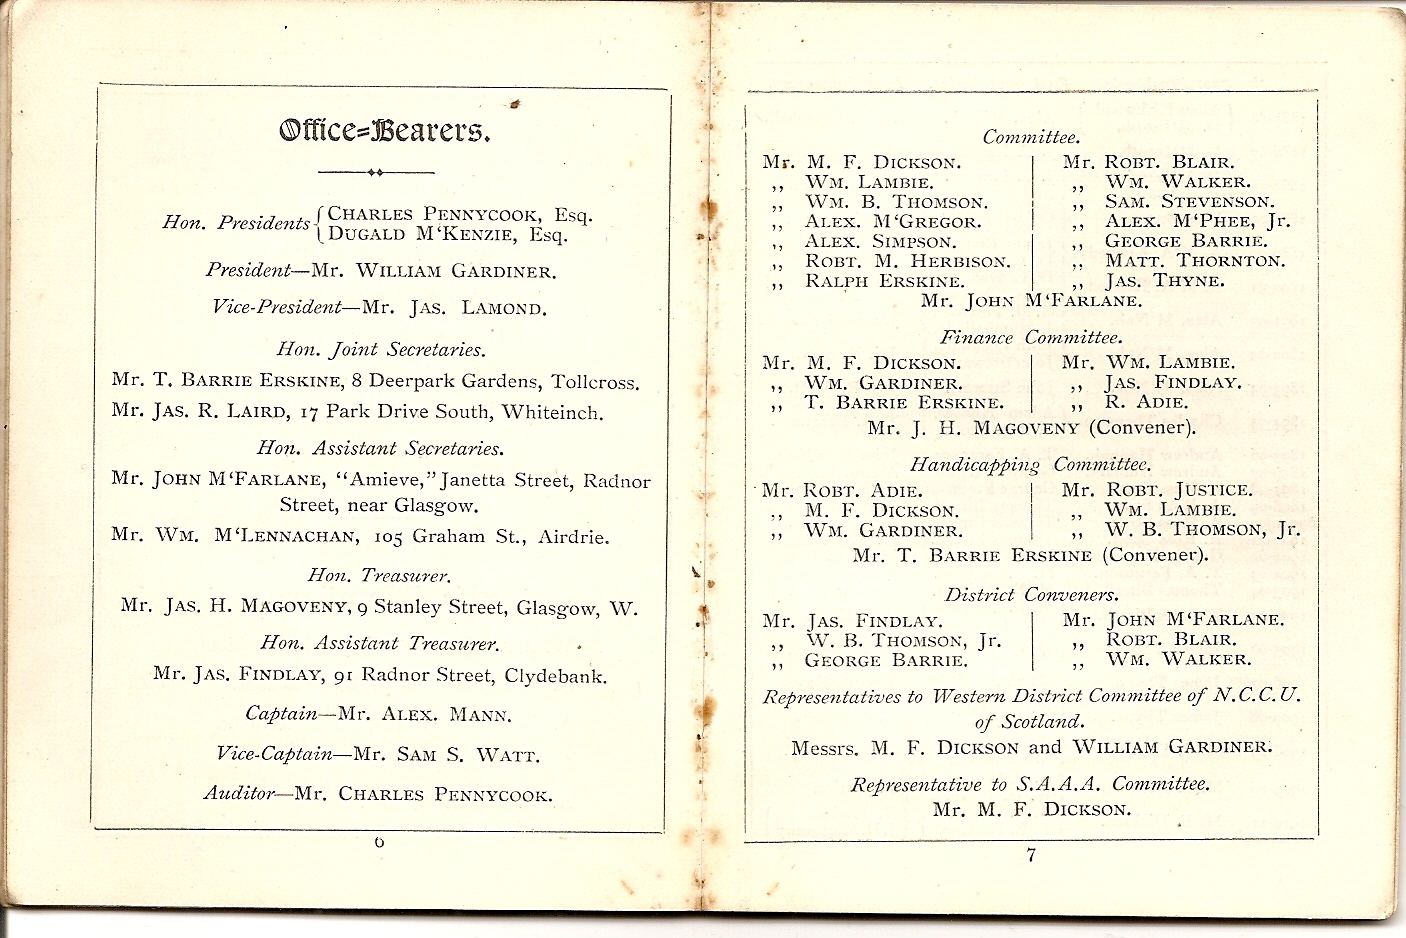 Office=Bearers.
Hon. Presidents { CHARLES PENNYCOOK, Esq.
DUGALD M‘KENZIE, Esq.
President—Mr. WILLIAM GARDINER.
Vice-President—Mr. JAS. LAMOND.
Hon. Joint Secretaries.
Mr. T. BARRIE ERSKINE, 8 Deerpark Gardens, Tollcross.
Mr. JAS. R. LAIRD, 17 Park Drive South, Whiteinch.
Hon. Assistant Secretaries.
Mr. JOHN M‘FARLANE, “Amieve,” Janetta Street, Radnor
Street, near Glasgow.
Mr. WM. M‘LENNACHAN, 105 Graham St., Airdrie.
Hon. Treasurer.
Mr. JAS. H. MAGOVENY, 9 Stanley Street, Glasgow, W.
Hon. Assistant Treasurer.
Mr. JAS. FINDLAY, 91 Radnor Street, Clydebank.
Captain—Mr. ALEX. MANN.
Vice-Captain—Mr. SAM S. WATT.
Auditor—Mr. CHARLES PENNYCOOK.
6
Committee.
Mr. M. F. DICKSON.
,, WM. LAMBIE.
,, WM. B. THOMSON.
,, ALEX. M‘GREGOR.
,, ALEX. SIMPSON.
,, ROBT. M. HERBISON.
,, RALPH ERSKINE.
Mr. ROBT. BLAIR.
,, WM. WALKER.
,, SAM. STEVENSON.
,, ALEX. M‘PHEE, Jr.
,, GEORGE BARRIE.
,, MATT. THORNTON.
,, JAS. THYNE.
Mr. JOHN M‘FARLANE.
Finance Committee.
Mr. M. F. DICKSON.
,, WM. GARDINER.
,, T. BARRIE ERSKINE.
Mr. WM. LAMBIE.
,, JAS. FINDLAY.
,, R. ADIE.
Mr. J. H. MAGOVENY (Convener).
Handicapping Committee.
Mr. ROBT. ADIE.
,, M. F. DICKSON.
,, WM. GARDINER.
Mr. ROBT. JUSTICE.
,, WM. LAMBIE.
,, W. B. THOMSON, Jr.
Mr. T. BARRIE ERSKINE (Convener).
District Conveners.
Mr. JAS. FINDLAY.
,, W. B. THOMSON, Jr.
,, GEORGE BARRIE.
Mr. JOHN M‘FARLANE.
,, ROBT. BLAIR.
,, WM. WALKER.
Representatives to Western District Committee of N.C.C.U.
of Scotland.
Messrs. M. F. DICKSON and WILLIAM GARDINER.
Representative to S.A.A.A. Committee.
Mr. M. F. DICKSON.
7